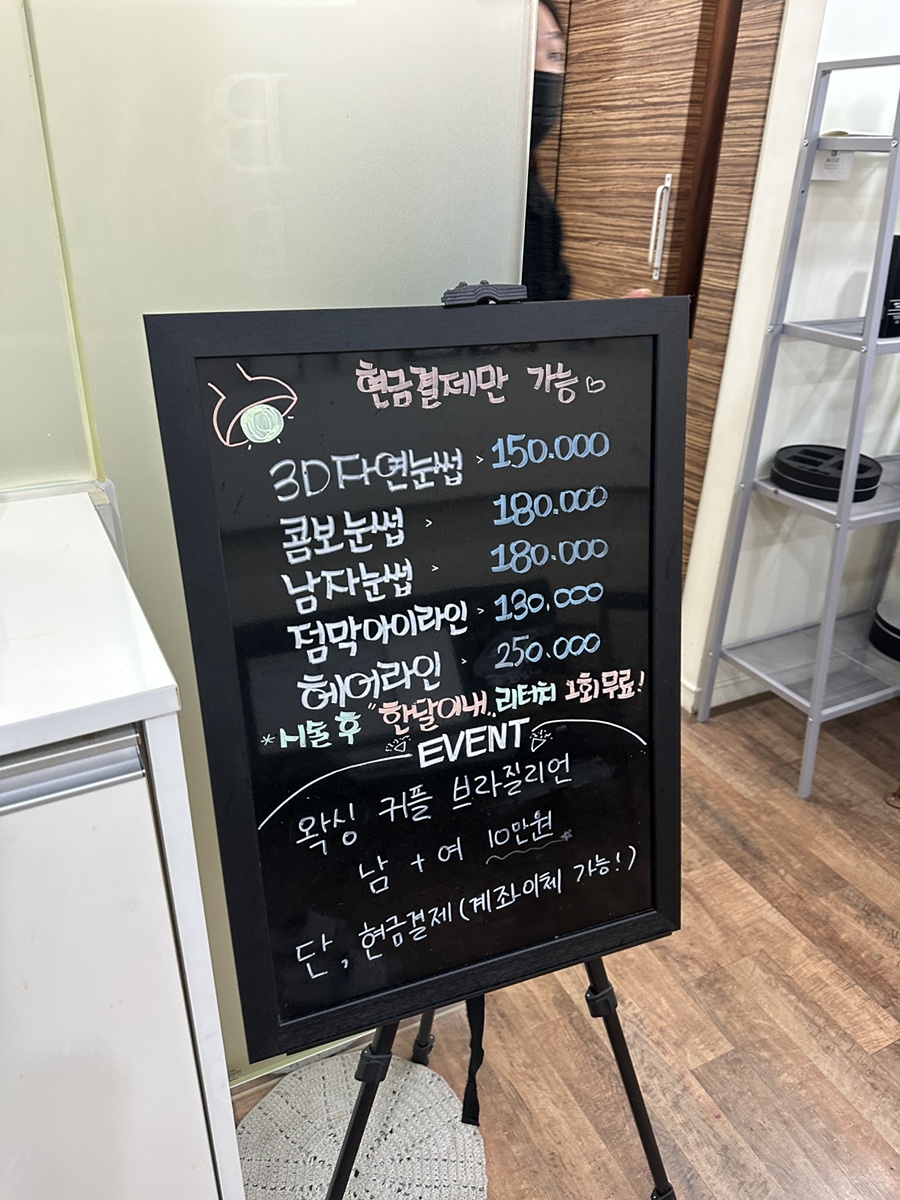 현금결제만 가능♡
3D자연눈썹 > 150.000
콤보눈썹 > 180.000
남자눈썹 > 180.000
점막아이라인 > 130.000
헤어라인 > 250.000
*시술 후 "한달이내" 리터치 1회 무료!
EVENT
왁싱 커플 브라질리언
남 + 여 10만원
단, 현금결제(계좌이체 가능!)
B